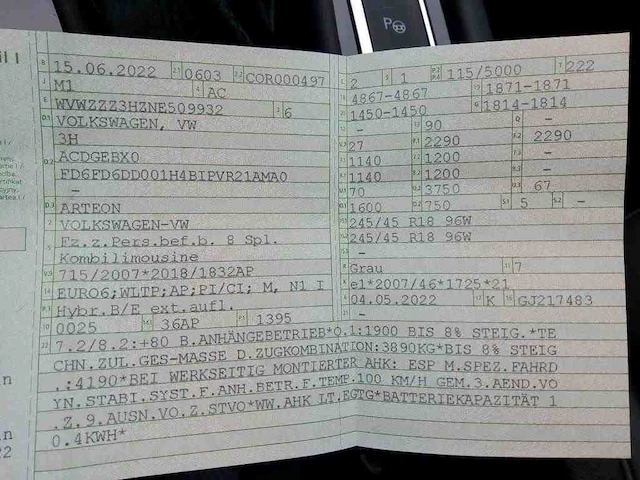 15.06.2022 0603 COR000497 2 1 115/5000 222
M1 AC 4867-4867 1871-1871
WVWZZZ3HZNE509932 6 1450-1450 1814-1814
VOLKSWAGEN, VW - 90 -
3H 27 2290 2290
ACDGEBX0 1140 1200 -
FD6FD6DD001H4BIPVR21AMA0 1140 1200 -
- 70 3750 67
ARTEON 1600 750 5 -
VOLKSWAGEN-VW 245/45 R18 96W
Fz.z.Pers.bef.b. 8 Spl. 245/45 R18 96W
Kombilimousine -
715/2007*2018/1832AP Grau 7
EURO6;WLTP;AP;PI/CI; M, N1 I e1*2007/46*1725*21
Hybr.B/E ext.aufl. 04.05.2022 K GJ217483
0025 36AP 1395 -
7.2/8.2:+80 B.ANHÄNGEBETRIEB*O.1:1900 BIS 8% STEIG.*TE
CHN.ZUL.GES-MASSE D.ZUGKOMBINATION:3890KG*BIS 8% STEIG
.:4190*BEI WERKSEITIG MONTIERTER AHK: ESP M.SPEZ.FAHRD
YN.STABI.SYST.F.ANH.BETR.F.TEMP.100 KM/H GEM.3.AEND.VO
.Z.9.AUSN.VO.Z.STVO*WW.AHK LT.EGTG*BATTERIEKAPAZITÄT 1
0.4KWH*